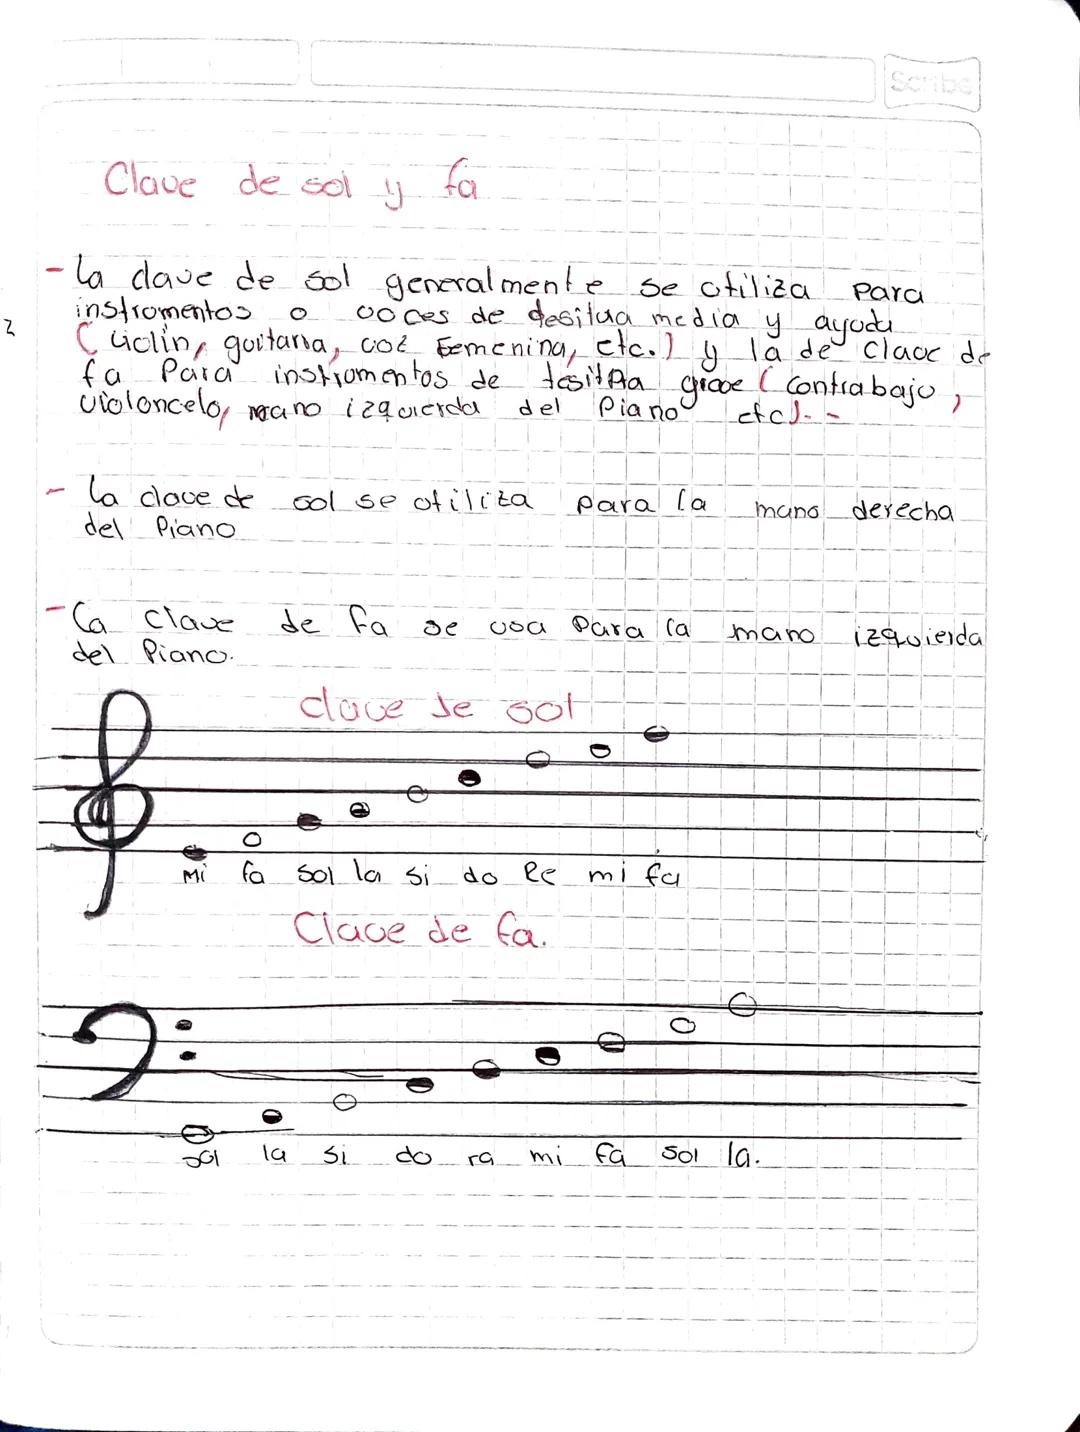 Scribe
Clave de sol y fa
- la clave de sol generalmente se utiliza para
instrumentos o voces de desitua media y ayuda
( violin, guitarra, voz Femenina, etc.) y la de clave de
fa Para instrumentos de tesitAa grave ( contrabajo,
violoncelo, mano izquierda del Piano etc).-
- la clave de sol se utiliza para la mano derecha
del Piano
- la clave de fa se usa para la mano izquierda
del Piano.
clave de sol
Mi fa sol la si do Re mi fa
Clave de fa.
sol la si do ra mi fa sol la.